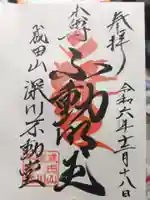 奉拝
令和六年十二月十八日
本尊
不動明王
成田山
深川不動堂